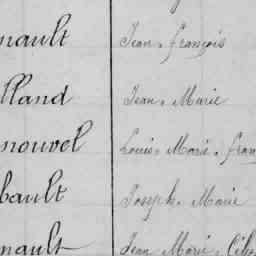 nault Jean-François
lland Jean-Marie
nouvel Louis-Marie-Fran
bault Joseph-Marie
nault Jean Marie-